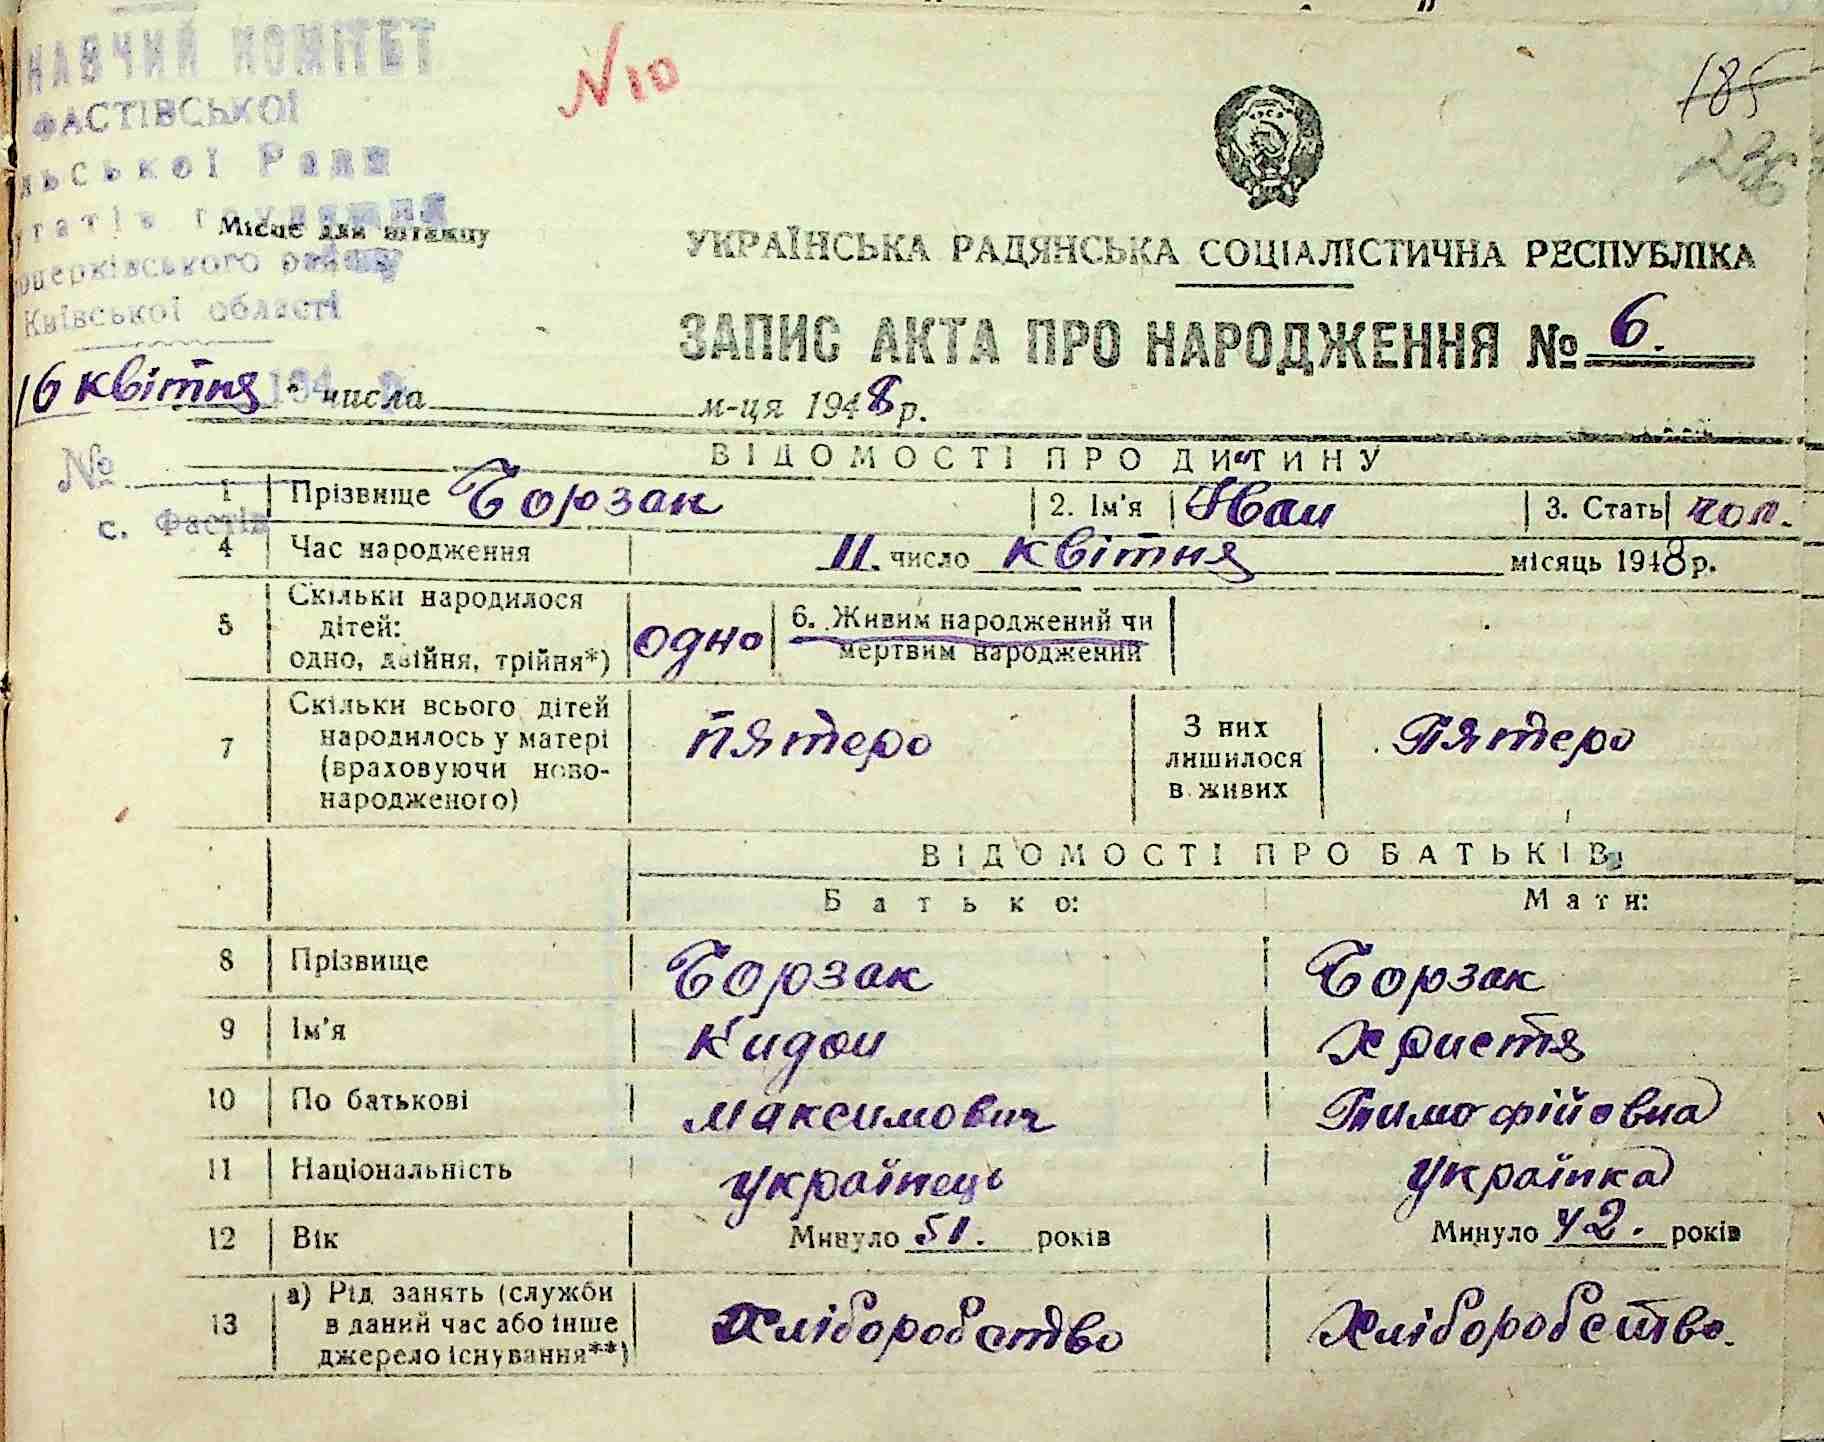 НАВЧИЙ КОМІТЕТ
ФАСТІВСЬКОЇ
льської Ради
Київської області
№ 10
185
236
Місце для штампу
УКРАЇНСЬКА РАДЯНСЬКА СОЦІАЛІСТИЧНА РЕСПУБЛІКА
ЗАПИС АКТА ПРО НАРОДЖЕННЯ № 6.
16 квітня числа м-ця 1948 р.
№
с. Фастів
ВІДОМОСТІ ПРО ДИТИНУ
1 Прізвище Борзак 2. Ім'я Іван 3. Стать чол.
4 Час народження 11. число квітня місяць 1948 р.
5 Скільки народилося дітей: одно, двійня, трійня*) одно 6. Живим народжений чи мертвим народжений
7 Скільки всього дітей народилось у матері (враховуючи новонародженого) пятеро З них лишилося в живих Пятеро
ВІДОМОСТІ ПРО БАТЬКІВ
Батько: Мати:
8 Прізвище Борзак Борзак
9 Ім'я Кидон Христя
10 По батькові Максимович Тимофійовна
11 Національність українець українка
12 Вік Минуло 51. років Минуло 42. років
13 а) Рід занять (служби в даний час або інше джерело існування**) Хліборобство Хліборобство.